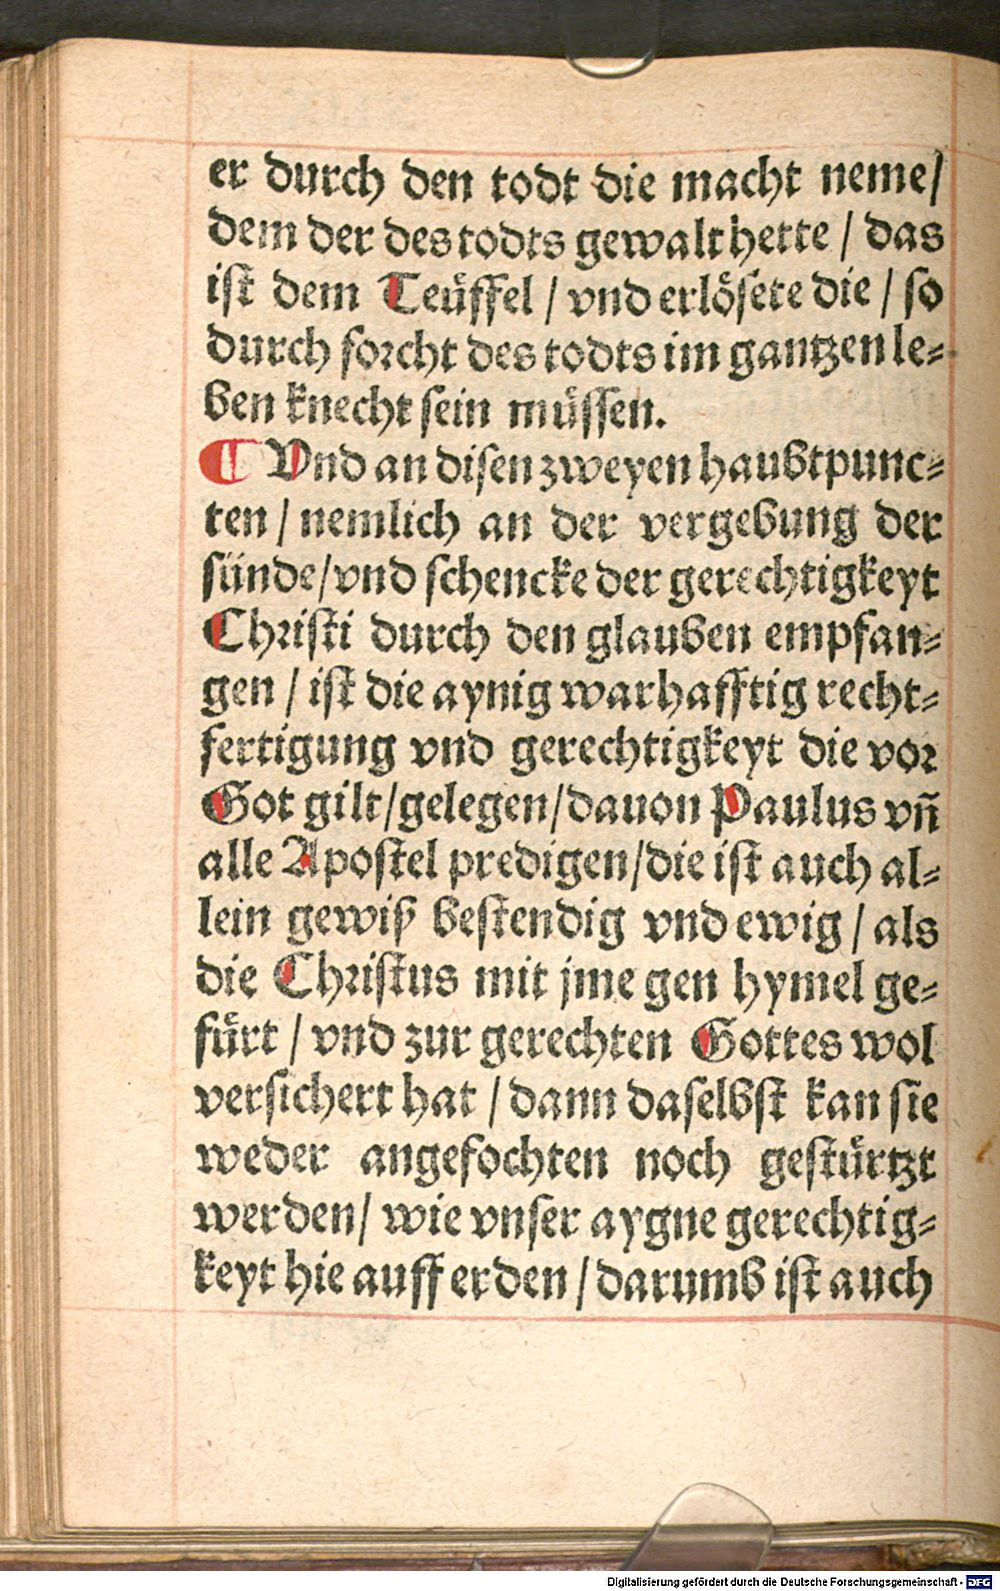 er durch den todt die macht neme/
dem der des todts gewalt hette / das
ist dem Teüffel / vnd erlösete die / so
durch forcht des todts im gantzen le⸗
ben knecht sein müssen.
¶ Vnd an disen zweyen haubtpunc⸗
ten / nemlich an der vergebung der
sünde/vnd schencke der gerechtigkeyt
Christi durch den glauben empfan⸗
gen / ist die aynig warhafftig recht⸗
fertigung vnd gerechtigkeyt die vor
Got gilt/gelegen/dauon Paulus vñ
alle Apostel predigen/die ist auch al⸗
lein gewiß bestendig vnd ewig / als
die Christus mit jme gen hymel ge⸗
fürt / vnd zur gerechten Gottes wol
versichert hat / dann daselbst kan sie
weder angefochten noch gestürtzt
werden/ wie vnser aygne gerechtig⸗
keyt hie auff erden / darumb ist auch
Digitalisierung gefördert durch die Deutsche Forschungsgemeinschaft - DFG